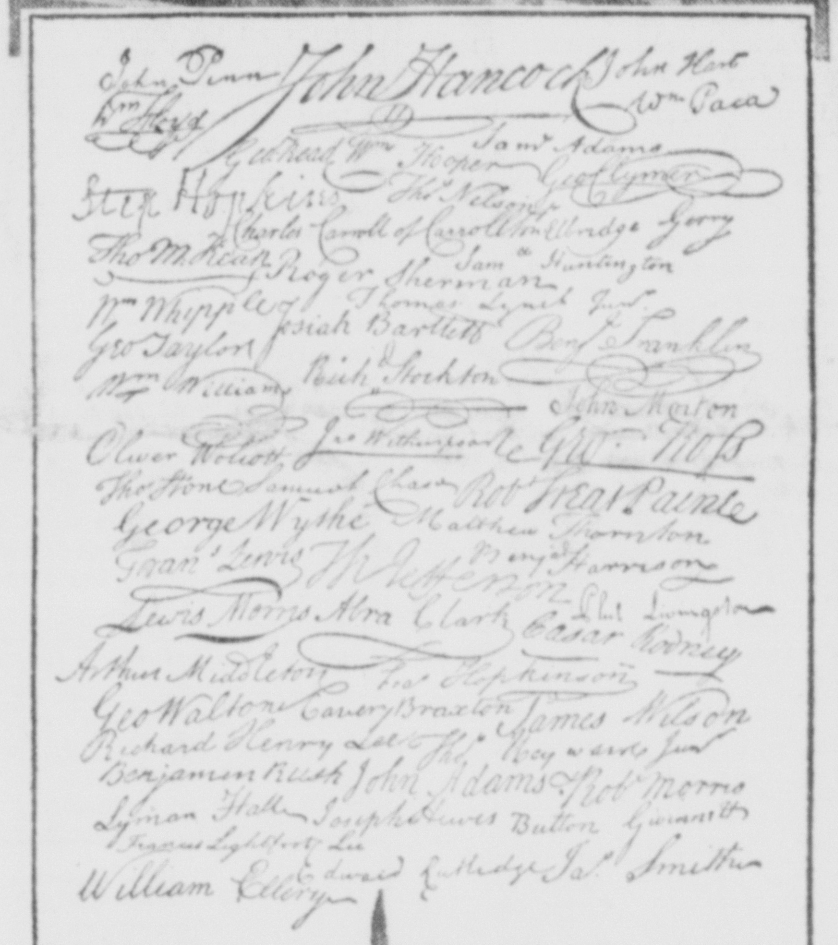 John Penn John Hancock John Hart
Wm Floyd Wm Paca
Geo Read Wm Hooper Saml Adams
Geo Clymer
Step Hopkins Thos Nelson jr
Charles Carroll of Carrollton Elbridge Gerry
Tho M. Kean Roger Sherman Saml Huntington
Wm Whipple Thomas Lynch Junr
Josiah Bartlett Benj Franklin
Geo Taylor
Wm Williams Richd Stockton
John Morton
Oliver Wolcott Jno Witherspoon Geo. Ross
Thos Stone Samuel Chase Robt Treat Paine
George Wythe Matthew Thornton
Frans Lewis Th Jefferson Benja Harrison
Lewis Morris Abra Clark Phil Livingston
Cæsar Rodney
Arthur Middleton Fras Hopkinson
Geo Walton Carter Braxton James Wilson
Richard Henry Lee Thos Heyward Junr
Benjamin Rush John Adams Robt Morris
Lyman Hall Joseph Hewes Button Gwinnett
Francis Lightfoot Lee
William Ellery Edward Rutledge Jas Smith